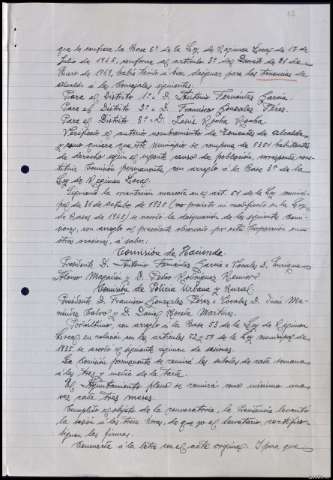 que le confiere la Base 6ª de la Ley de Régimen Local de 17 de
Julio de 1945, conforme al artículo 3º del Decreto de 25 de
Enero de 1946, había tenido a bien designar para las Tenencias de
Alcaldía a los Concejales siguientes:
Para el Distrito 1º: D. Antonio Fernández García
Para el Distrito 2º: D. Francisco González Pérez
Para el Distrito 3º: D. Louis Rocha Rocha
Verificado el anterior nombramiento de Tenientes de Alcalde,
y como quiera que este Municipio se compone de habitantes
de derecho según el vigente censo de población, corresponde cons-
tituir Comisión permanente, con arreglo a la Base 5ª de la
Ley de Régimen Local.
Siguiendo la tramitación marcada en el art. 61 de la Ley munici-
pal de 31 de octubre de 1935 (no previsto ni modificado en la Ley
de Bases de 1945) se acordó la designación de las siguientes Comi-
siones, con arreglo al precedente observado por esta Corporación en
otras sesiones, a saber:
Comisión de Hacienda
Presidente D. Antonio Fernández García y Vocales D. Enrique
Alonso Magariños y D. Pedro Rodríguez
Comisión de Policía Urbana y Rural.
Presidente D. Francisco González Pérez y Vocales D. José Ma-
Calvo y D. García Martínez.
Por último, con arreglo a la Base 53 de la Ley de Régimen
Local en relación con los artículos 52 y 57 de la Ley municipal de
1935, se acordó el siguiente régimen de sesiones.
La Comisión permanente se reunirá los sábados de cada semana
a las tres y media de la tarde.
El Ayuntamiento pleno se reunirá como mínimo una
vez cada tres meses.
Cumplido el objeto de la convocatoria, la Presidencia levantó
la sesión a las trece horas, de que yo el Secretario, certifico.
Siguen las firmas.
Concuerda a la letra con el acta original. Y para que